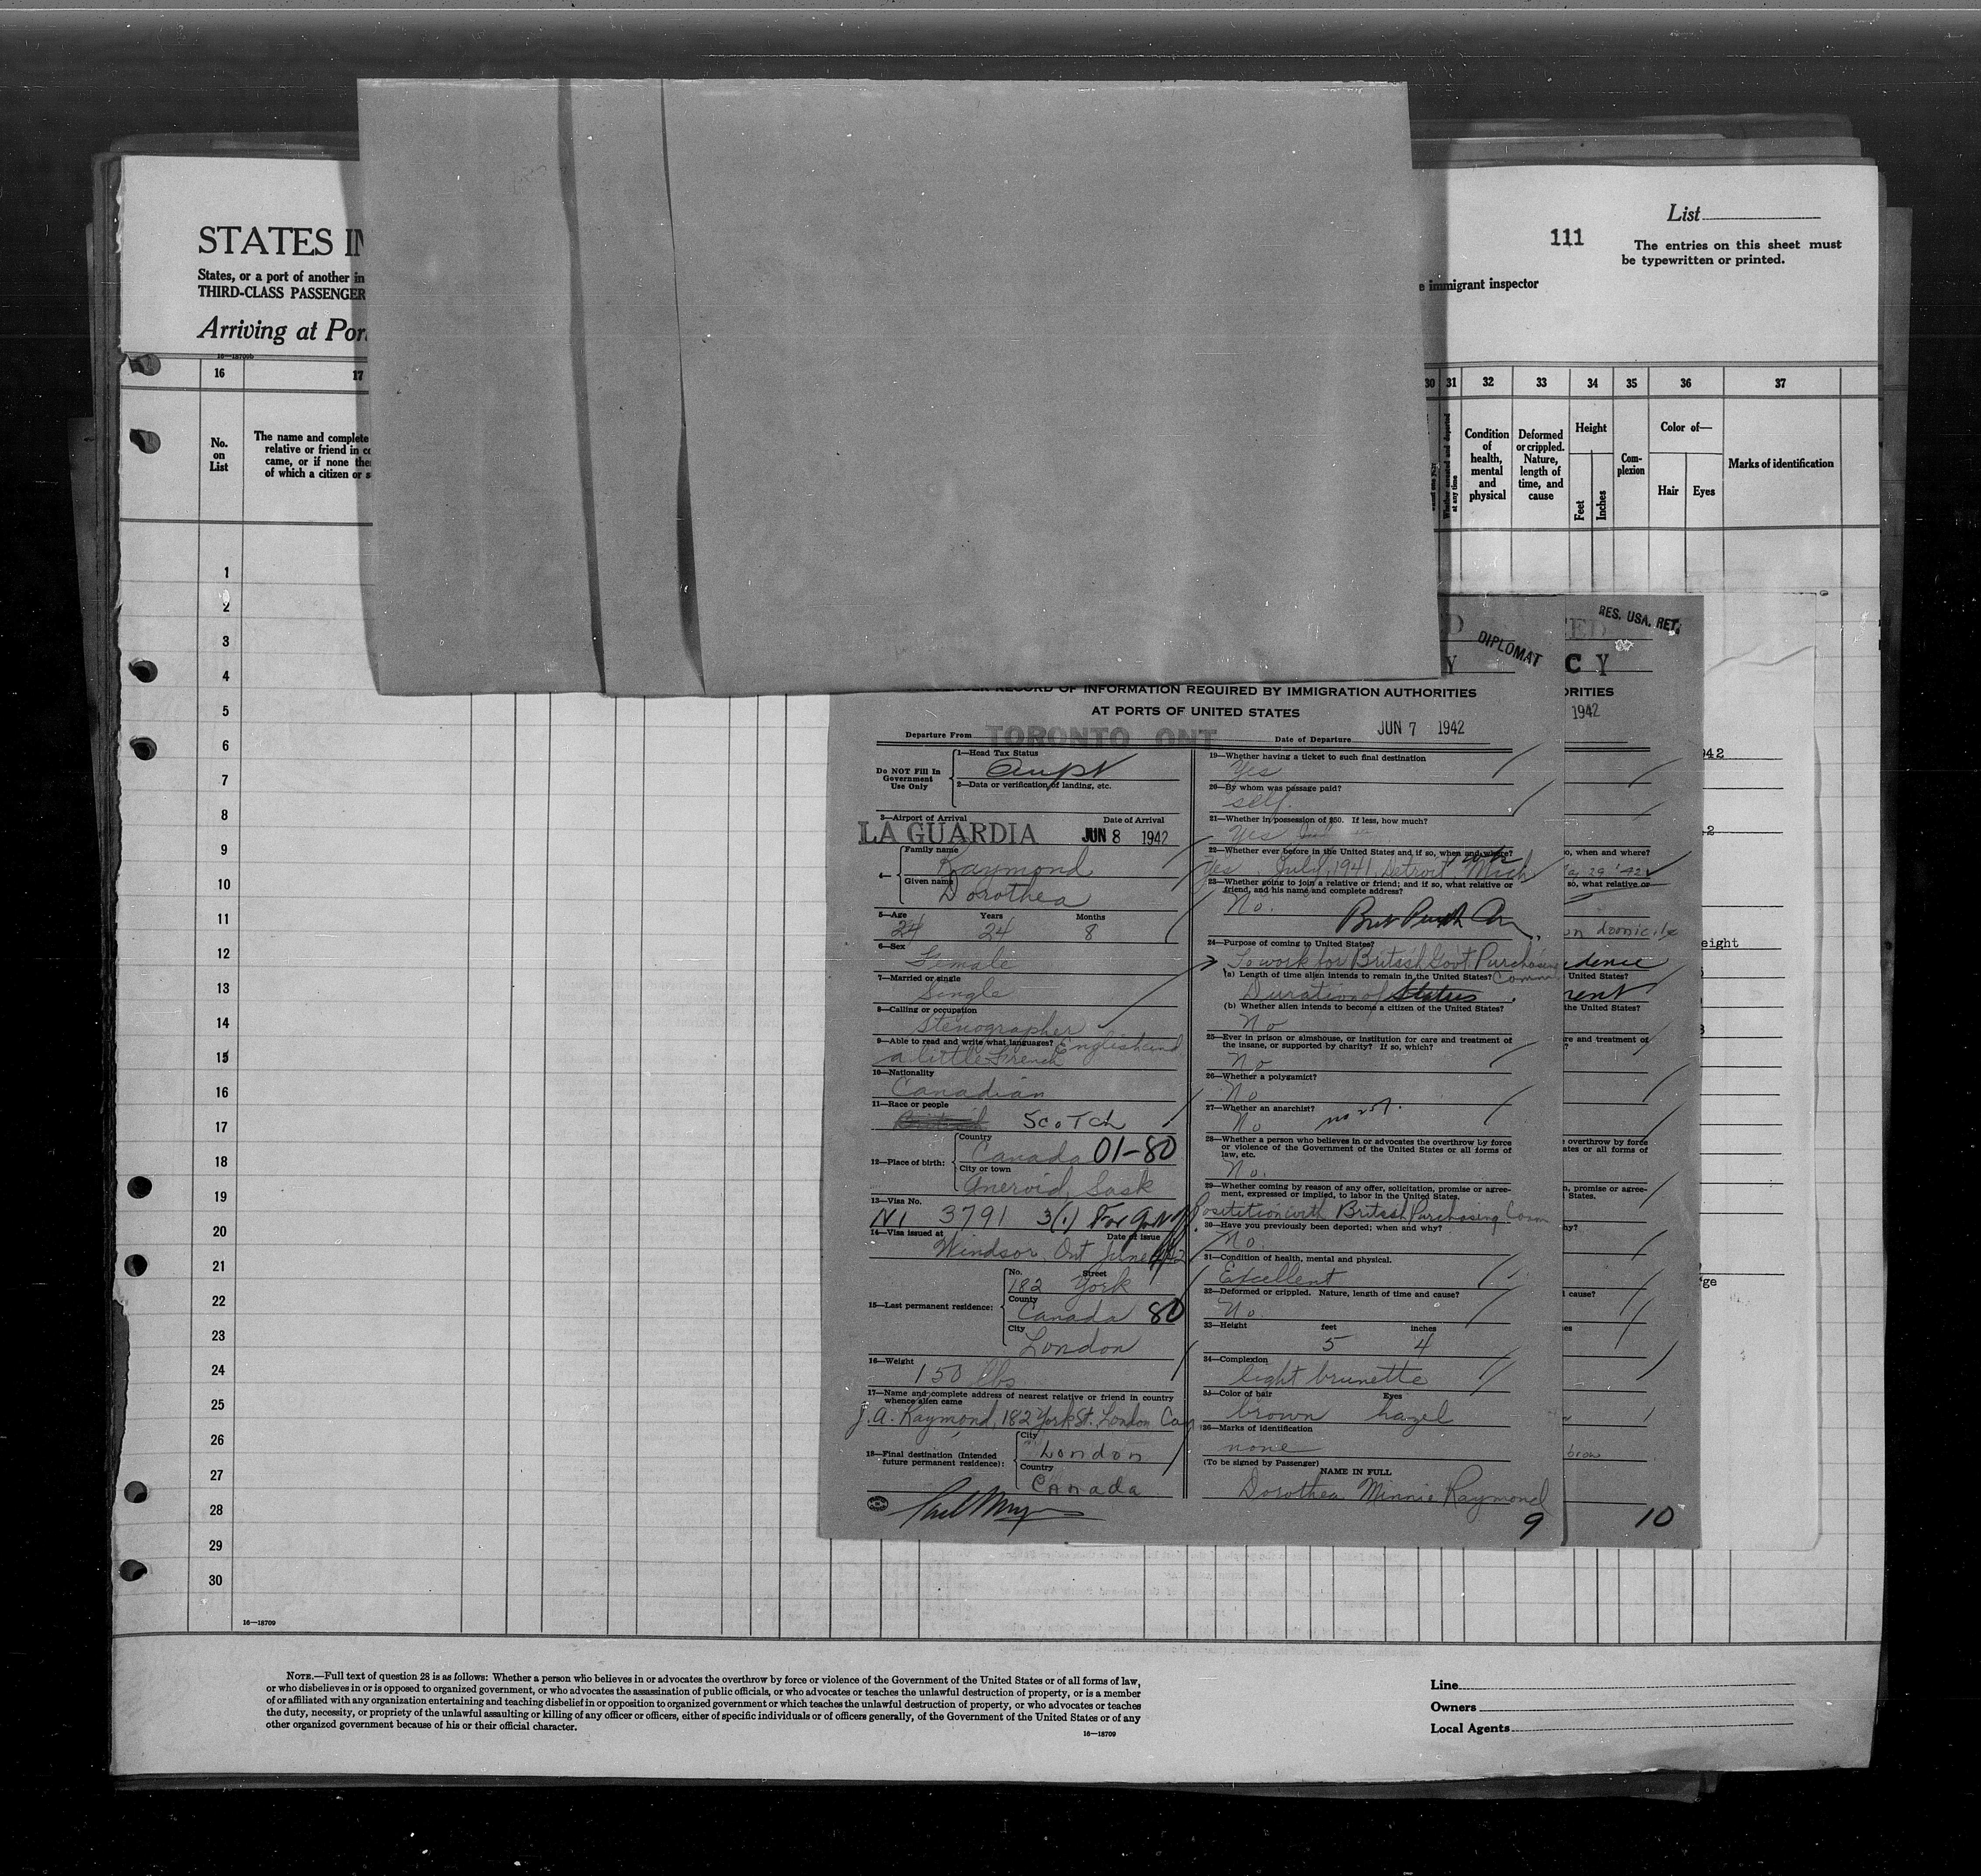 STATES IN
States, or a port of another in
THIRD-CLASS PASSENGER
Arriving at Por
16—18709b
111
List
The entries on this sheet must
be typewritten or printed.
e immigrant inspector
16
17
30
31
32
33
34
35
36
37
No.
on
List
The name and complete
relative or friend in co
came, or if none the
of which a citizen or s
Whether arrested and deported
at any time
Condition
of
health,
mental
and
physical
Deformed
or crippled.
Nature,
length of
time, and
cause
Height
Feet
Inches
Com-
plexion
Color of—
Hair
Eyes
Marks of identification
1
2
3
4
5
6
7
8
9
10
11
12
13
14
15
16
17
18
19
20
21
22
23
24
25
26
27
28
29
30
16—18709
D
Y
DIPLOMAT
RECORD OF INFORMATION REQUIRED BY IMMIGRATION AUTHORITIES
AT PORTS OF UNITED STATES
Departure From TORONTO ONT
Date of Departure JUN 7 1942
Do NOT Fill In
Government
Use Only
1—Head Tax Status
2—Data or verification of landing, etc.
3—Airport of Arrival
Date of Arrival
LA GUARDIA JUN 8 1942
4—
Family name
Raymond
Given name
Dorothea
5—Age Years Months
24 24 8
6—Sex
Female
7—Married or single
Single
8—Calling or occupation
Stenographer
9—Able to read and write what languages? English and
a little French
10—Nationality
Canadian
11—Race or people
Scotch
12—Place of birth:
Country
Canada 01-80
City or town
Aneroid, Sask
13—Visa No.
3791 3(1)
14—Visa issued at Date of Issue
Windsor, Ont June
15—Last permanent residence:
No. Street
182 York
County
Canada 80
City
London
16—Weight
150 lbs
17—Name and complete address of nearest relative or friend in country
whence alien came
J. A. Raymond, 182 York St. London Can
18—Final destination (Intended
future permanent residence):
City
London
Country
Canada
19—Whether having a ticket to such final destination
Yes
20—By whom was passage paid?
self.
21—Whether in possession of $50. If less, how much?
Yes
22—Whether ever before in the United States and if so, when and where?
Yes July, 1941, Detroit, Mich
23—Whether going to join a relative or friend; and if so, what relative or
friend, and his name and complete address?
No.
24—Purpose of coming to United States?
To work for British Gov't Purchasing
Comm
(a) Length of time alien intends to remain in the United States?
Duration of Status
(b) Whether alien intends to become a citizen of the United States?
No
25—Ever in prison or almshouse, or institution for care and treatment of
the insane, or supported by charity? If so, which?
No
26—Whether a polygamist?
No
27—Whether an anarchist?
No
28—Whether a person who believes in or advocates the overthrow by force
or violence of the Government of the United States or all forms of
law, etc.
No.
29—Whether coming by reason of any offer, solicitation, promise or agree-
ment, expressed or implied, to labor in the United States.
Postition with British Purchasing Comm
30—Have you previously been deported; when and why?
No.
31—Condition of health, mental and physical.
Excellent
32—Deformed or crippled. Nature, length of time and cause?
No
33—Height feet inches
5 4
34—Complexion
light brunette
35—Color of hair Eyes
brown hazel
36—Marks of identification
none
(To be signed by Passenger)
NAME IN FULL
Dorothea Minnie Raymond
9
RES. USA. RET.
TED
C Y
ORITIES
1942
o, when and where?
so, what relative or
United States?
the United States?
re and treatment of
overthrow by force
ates or all forms of
n, promise or agree-
States.
hy?
cause?
es
brow
10
942
eight
ge
NOTE.—Full text of question 28 is as follows: Whether a person who believes in or advocates the overthrow by force or violence of the Government of the United States or of all forms of law,
or who disbelieves in or is opposed to organized government, or who advocates the assassination of public officials, or who advocates or teaches the unlawful destruction of property, or is a member
of or affiliated with any organization entertaining and teaching disbelief in or opposition to organized government or which teaches the unlawful destruction of property, or who advocates or teaches
the duty, necessity, or propriety of the unlawful assaulting or killing of any officer or officers, either of specific individuals or of officers generally, of the Government of the United States or of any
other organized government because of his or their official character.
16—18709
Line
Owners
Local Agents